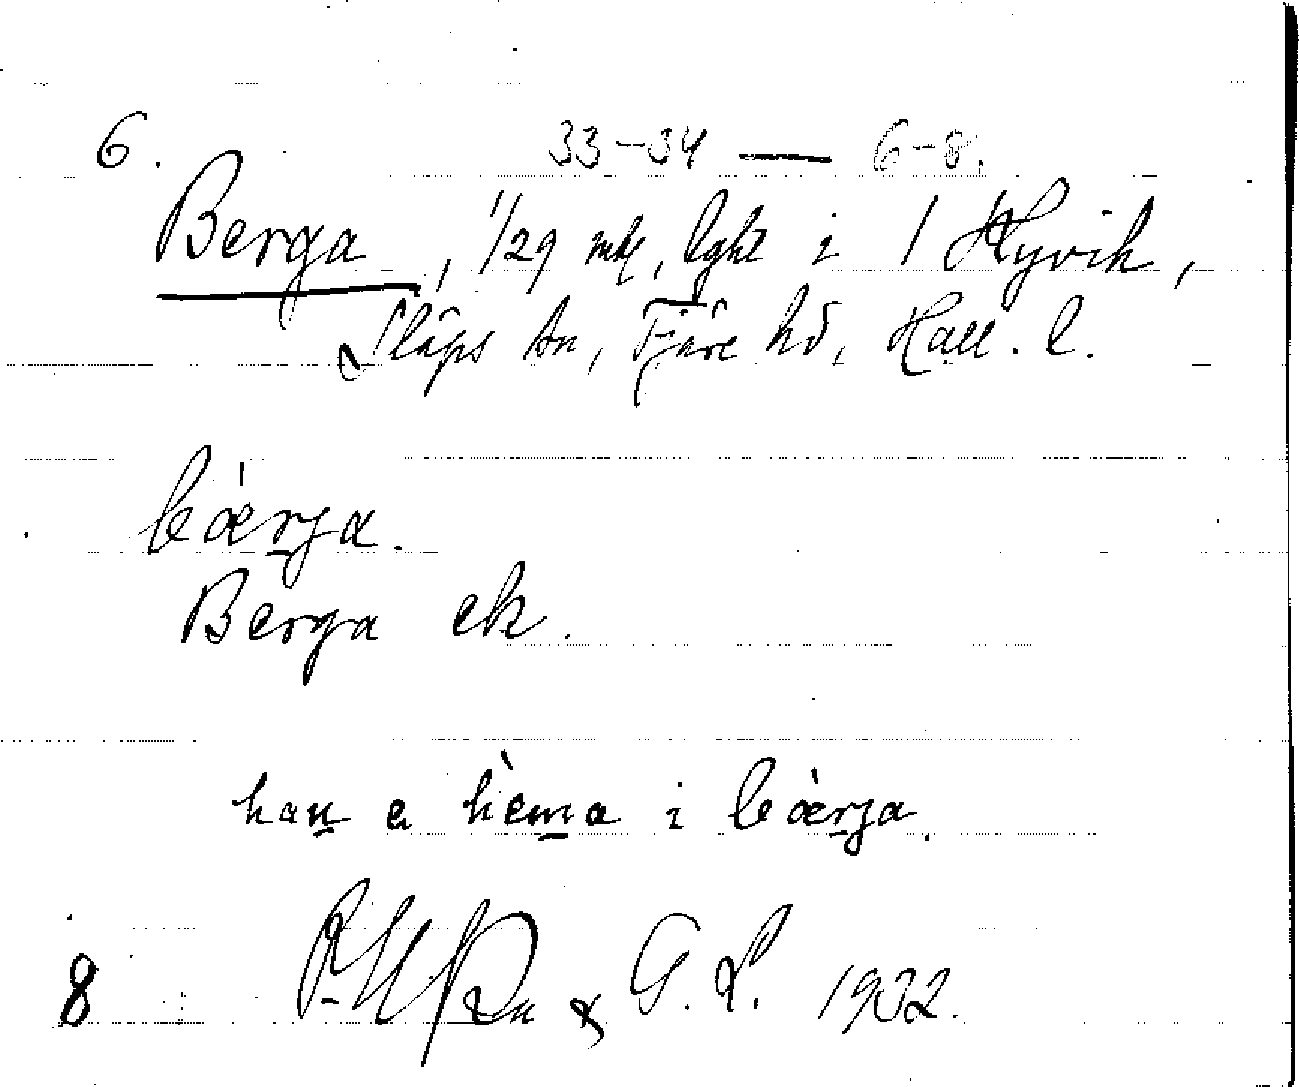 6. 33-34 — 6-8.
Berga, 1/29 mtl, lght i 1 Hyvik,
Släps sn, Fjäre hd, Hall. l.
bæ̀rja.
Berga ek.
han e hèma i bæ̀rja.
8 & G. L. 1932.